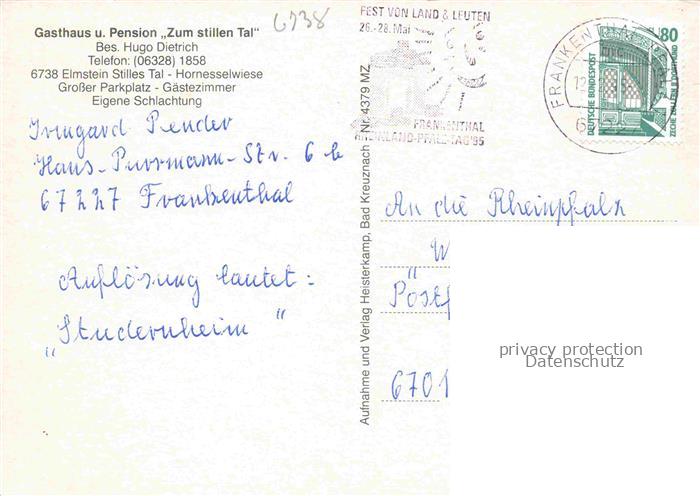 6738
Gasthaus u. Pension „Zum stillen Tal"
Bes. Hugo Dietrich
Telefon: (06328) 1858
6738 Elmstein Stilles Tal - Hornesselwiese
Großer Parkplatz - Gästezimmer
Eigene Schlachtung
Irmgard Render
Hans-Purrmann-Str. 6 b
67227 Frankenthal
Auflösung lautet:
„Studernheim"
Aufnahme und Verlag Heisterkamp, Bad Kreuznach Nr. 4379 MZ
FEST VON LAND & LEUTEN
26.-28. Mai
FRANKENTHAL
RHEINLAND-PFALZ-TAG'95
FRANKENTHAL
80
DEUTSCHE BUNDESPOST
ZECHE ZOLLERN II DORTMUND
An die Rheinpfalz
W
Postf
6701
privacy protection
Datenschutz